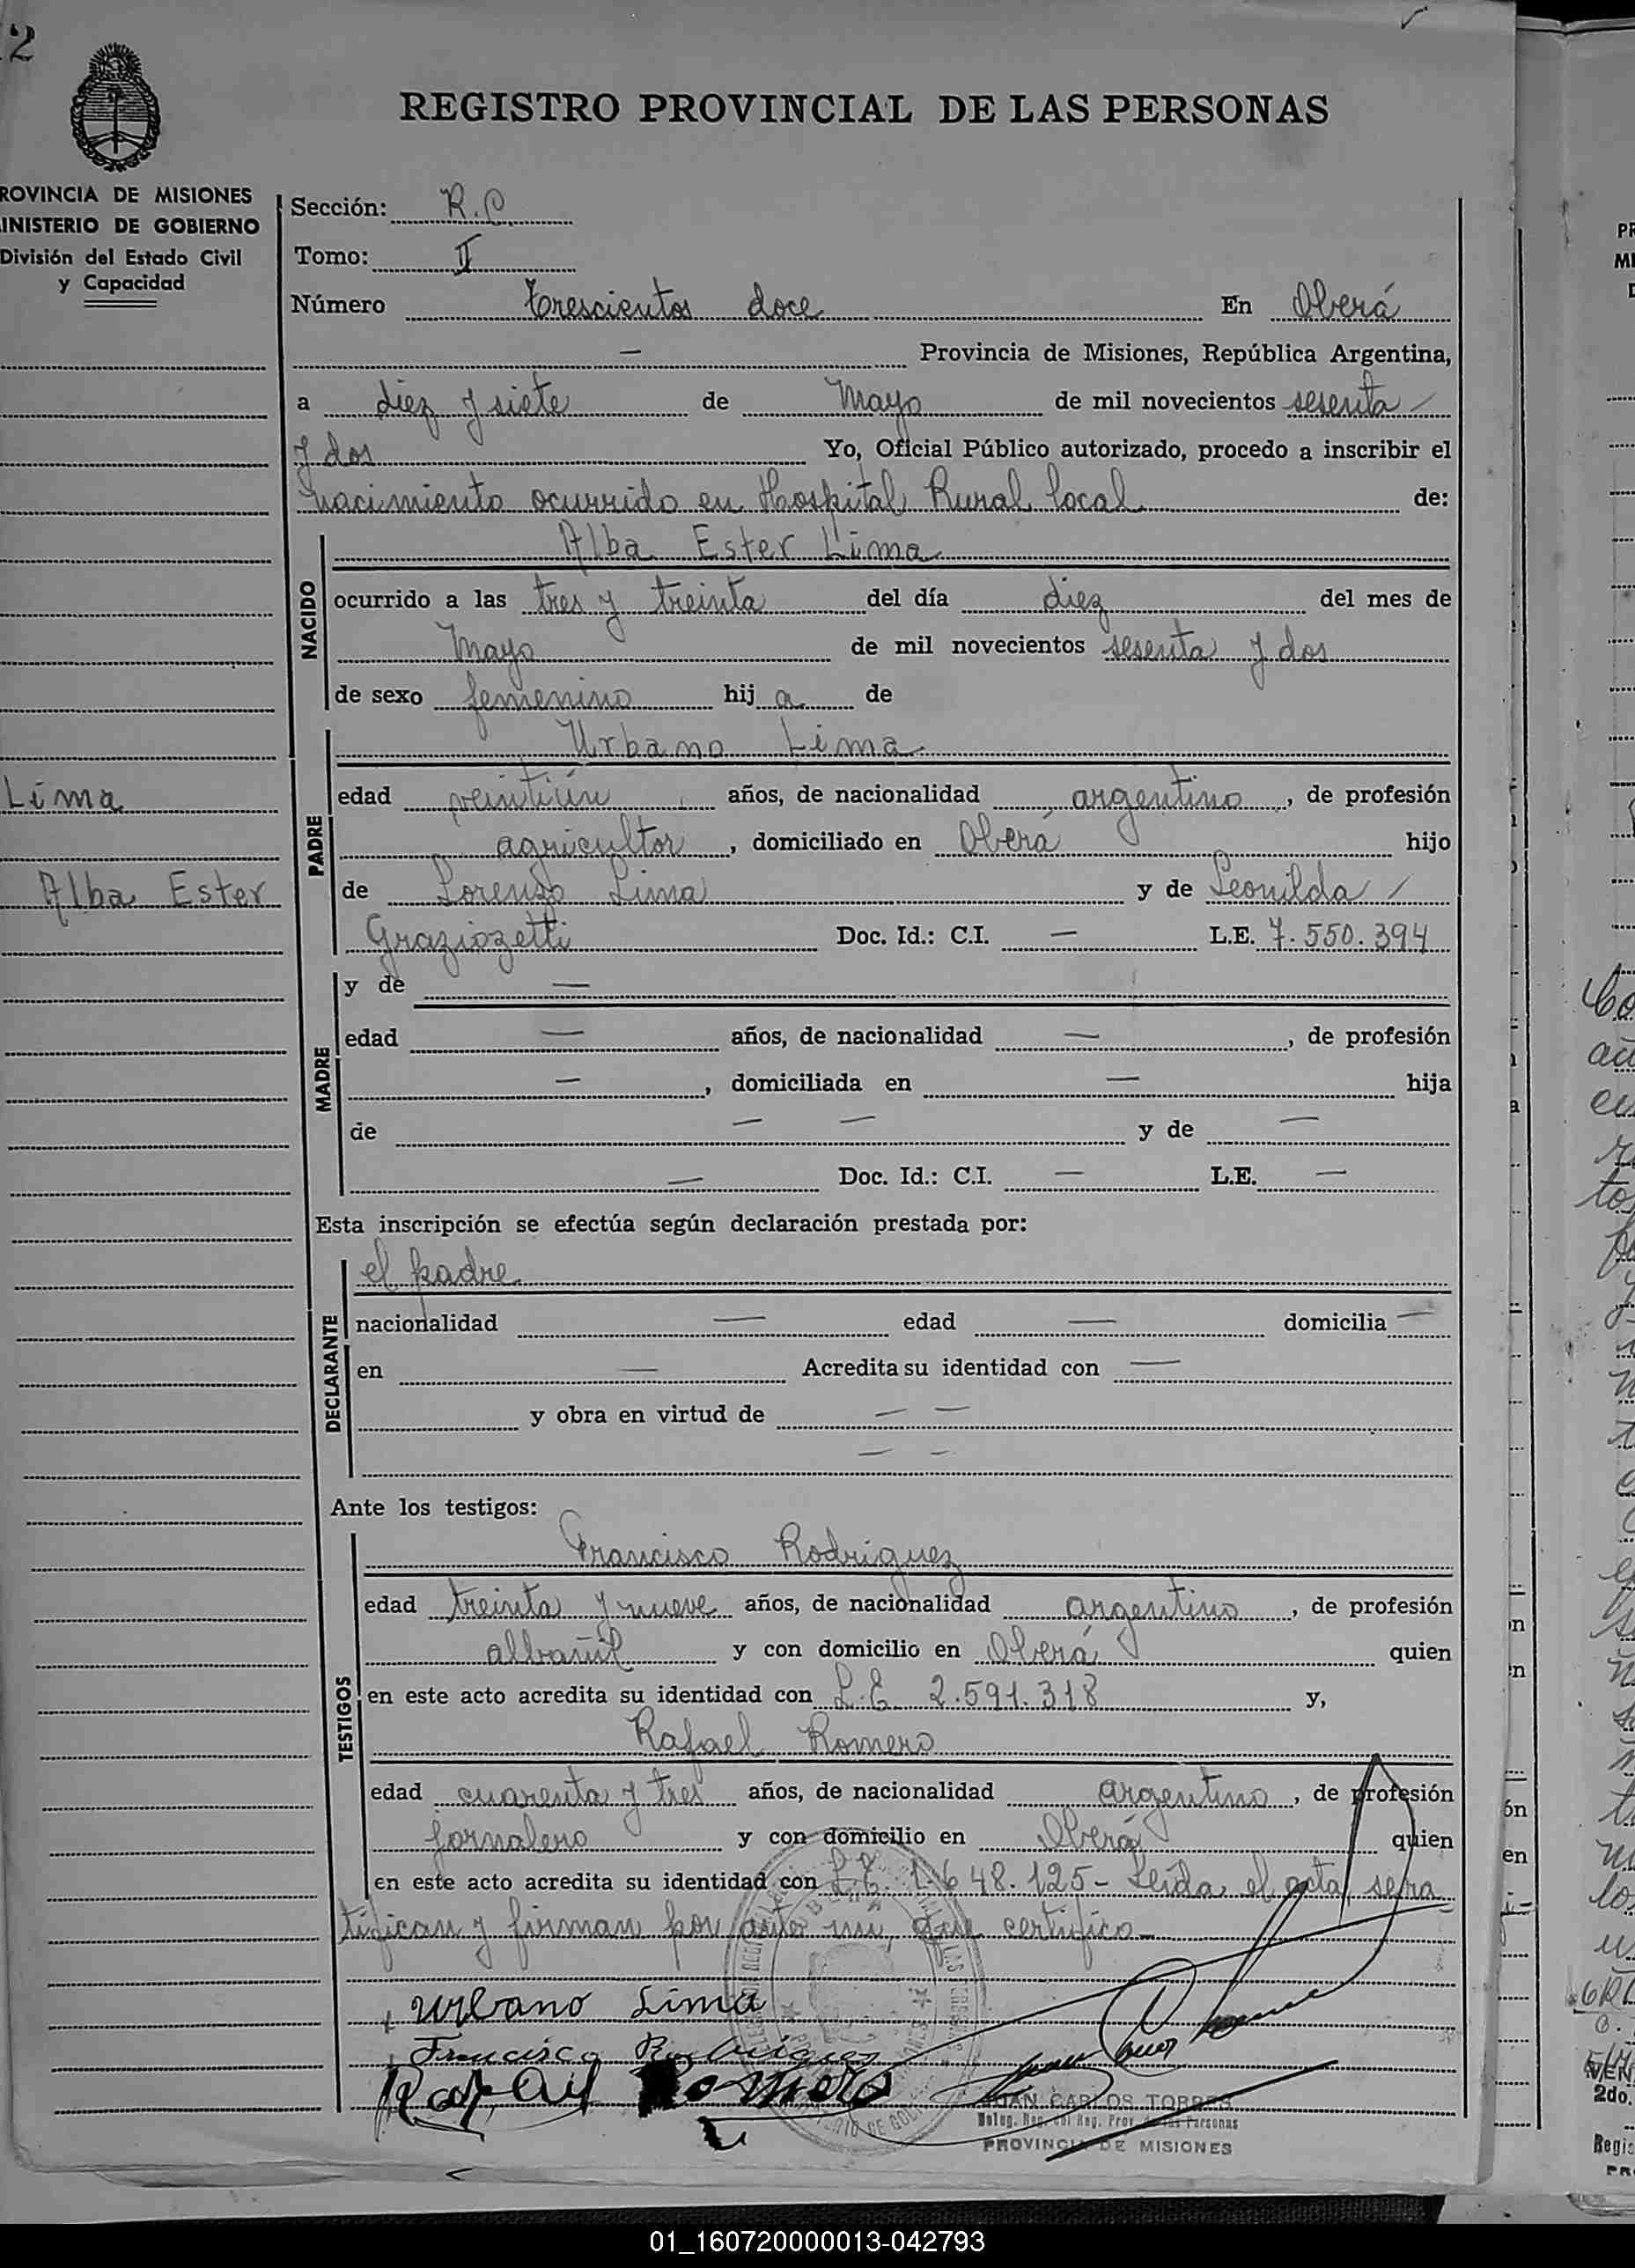 2
REGISTRO PROVINCIAL DE LAS PERSONAS
ROVINCIA DE MISIONES
INISTERIO DE GOBIERNO
División del Estado Civil
y Capacidad
Lima
Alba Ester
Sección: R.C.
Tomo: II
Número Trescientos doce En Oberá
— Provincia de Misiones, República Argentina,
a diez y siete de Mayo de mil novecientos sesenta
y dos Yo, Oficial Público autorizado, procedo a inscribir el
nacimiento ocurrido en Hospital Rural local de:
NACIDO
Alba Ester Lima
ocurrido a las tres y treinta del día diez del mes de
Mayo de mil novecientos sesenta y dos
de sexo femenino hija de
PADRE
Urbano Lima
edad veintiún años, de nacionalidad argentino, de profesión
agricultor, domiciliado en Oberá hijo
de Lorenzo Lima y de Leonilda
Graziozetti Doc. Id.: C.I. — L.E. 7.550.394
MADRE
y de —
edad — años, de nacionalidad —, de profesión
—, domiciliada en — hija
de — — y de —
— Doc. Id.: C.I. — L.E. —
Esta inscripción se efectúa según declaración prestada por:
DECLARANTE
el padre
nacionalidad — edad — domicilia —
en — Acredita su identidad con —
y obra en virtud de — —
— —
Ante los testigos:
TESTIGOS
Francisco Rodriguez
edad treinta y nueve años, de nacionalidad argentino, de profesión
albañil y con domicilio en Oberá quien
en este acto acredita su identidad con L.E. 2.591.318 y,
Rafael Romero
edad cuarenta y tres años, de nacionalidad argentino, de profesión
jornalero y con domicilio en Oberá quien
en este acto acredita su identidad con L.E. 1.648.125- Leída el acta, se ra
tifican y firman por ante mi, que certifico-
Urbano Lima
Francisco Rodriguez
Rafael Romero
JUAN CARLOS TORRES
PROVINCIA DE MISIONES
01_160720000013-042793